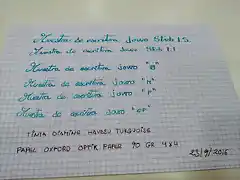 Muestra de escritura Jowo Stub 1.5
Muestra de escritura Jowo Stub 1.1
Muestra de escritura jowo "B"
Muestra de escritura jowo "M"
Muestra de escritura jowo "F"
Muestra de escritura jowo "EF"
TINTA DIAMINE HAVASU TURQUOISE
PAPEL OXFORD OPTIK PAPER 90 GR 4x4
23/9/2015